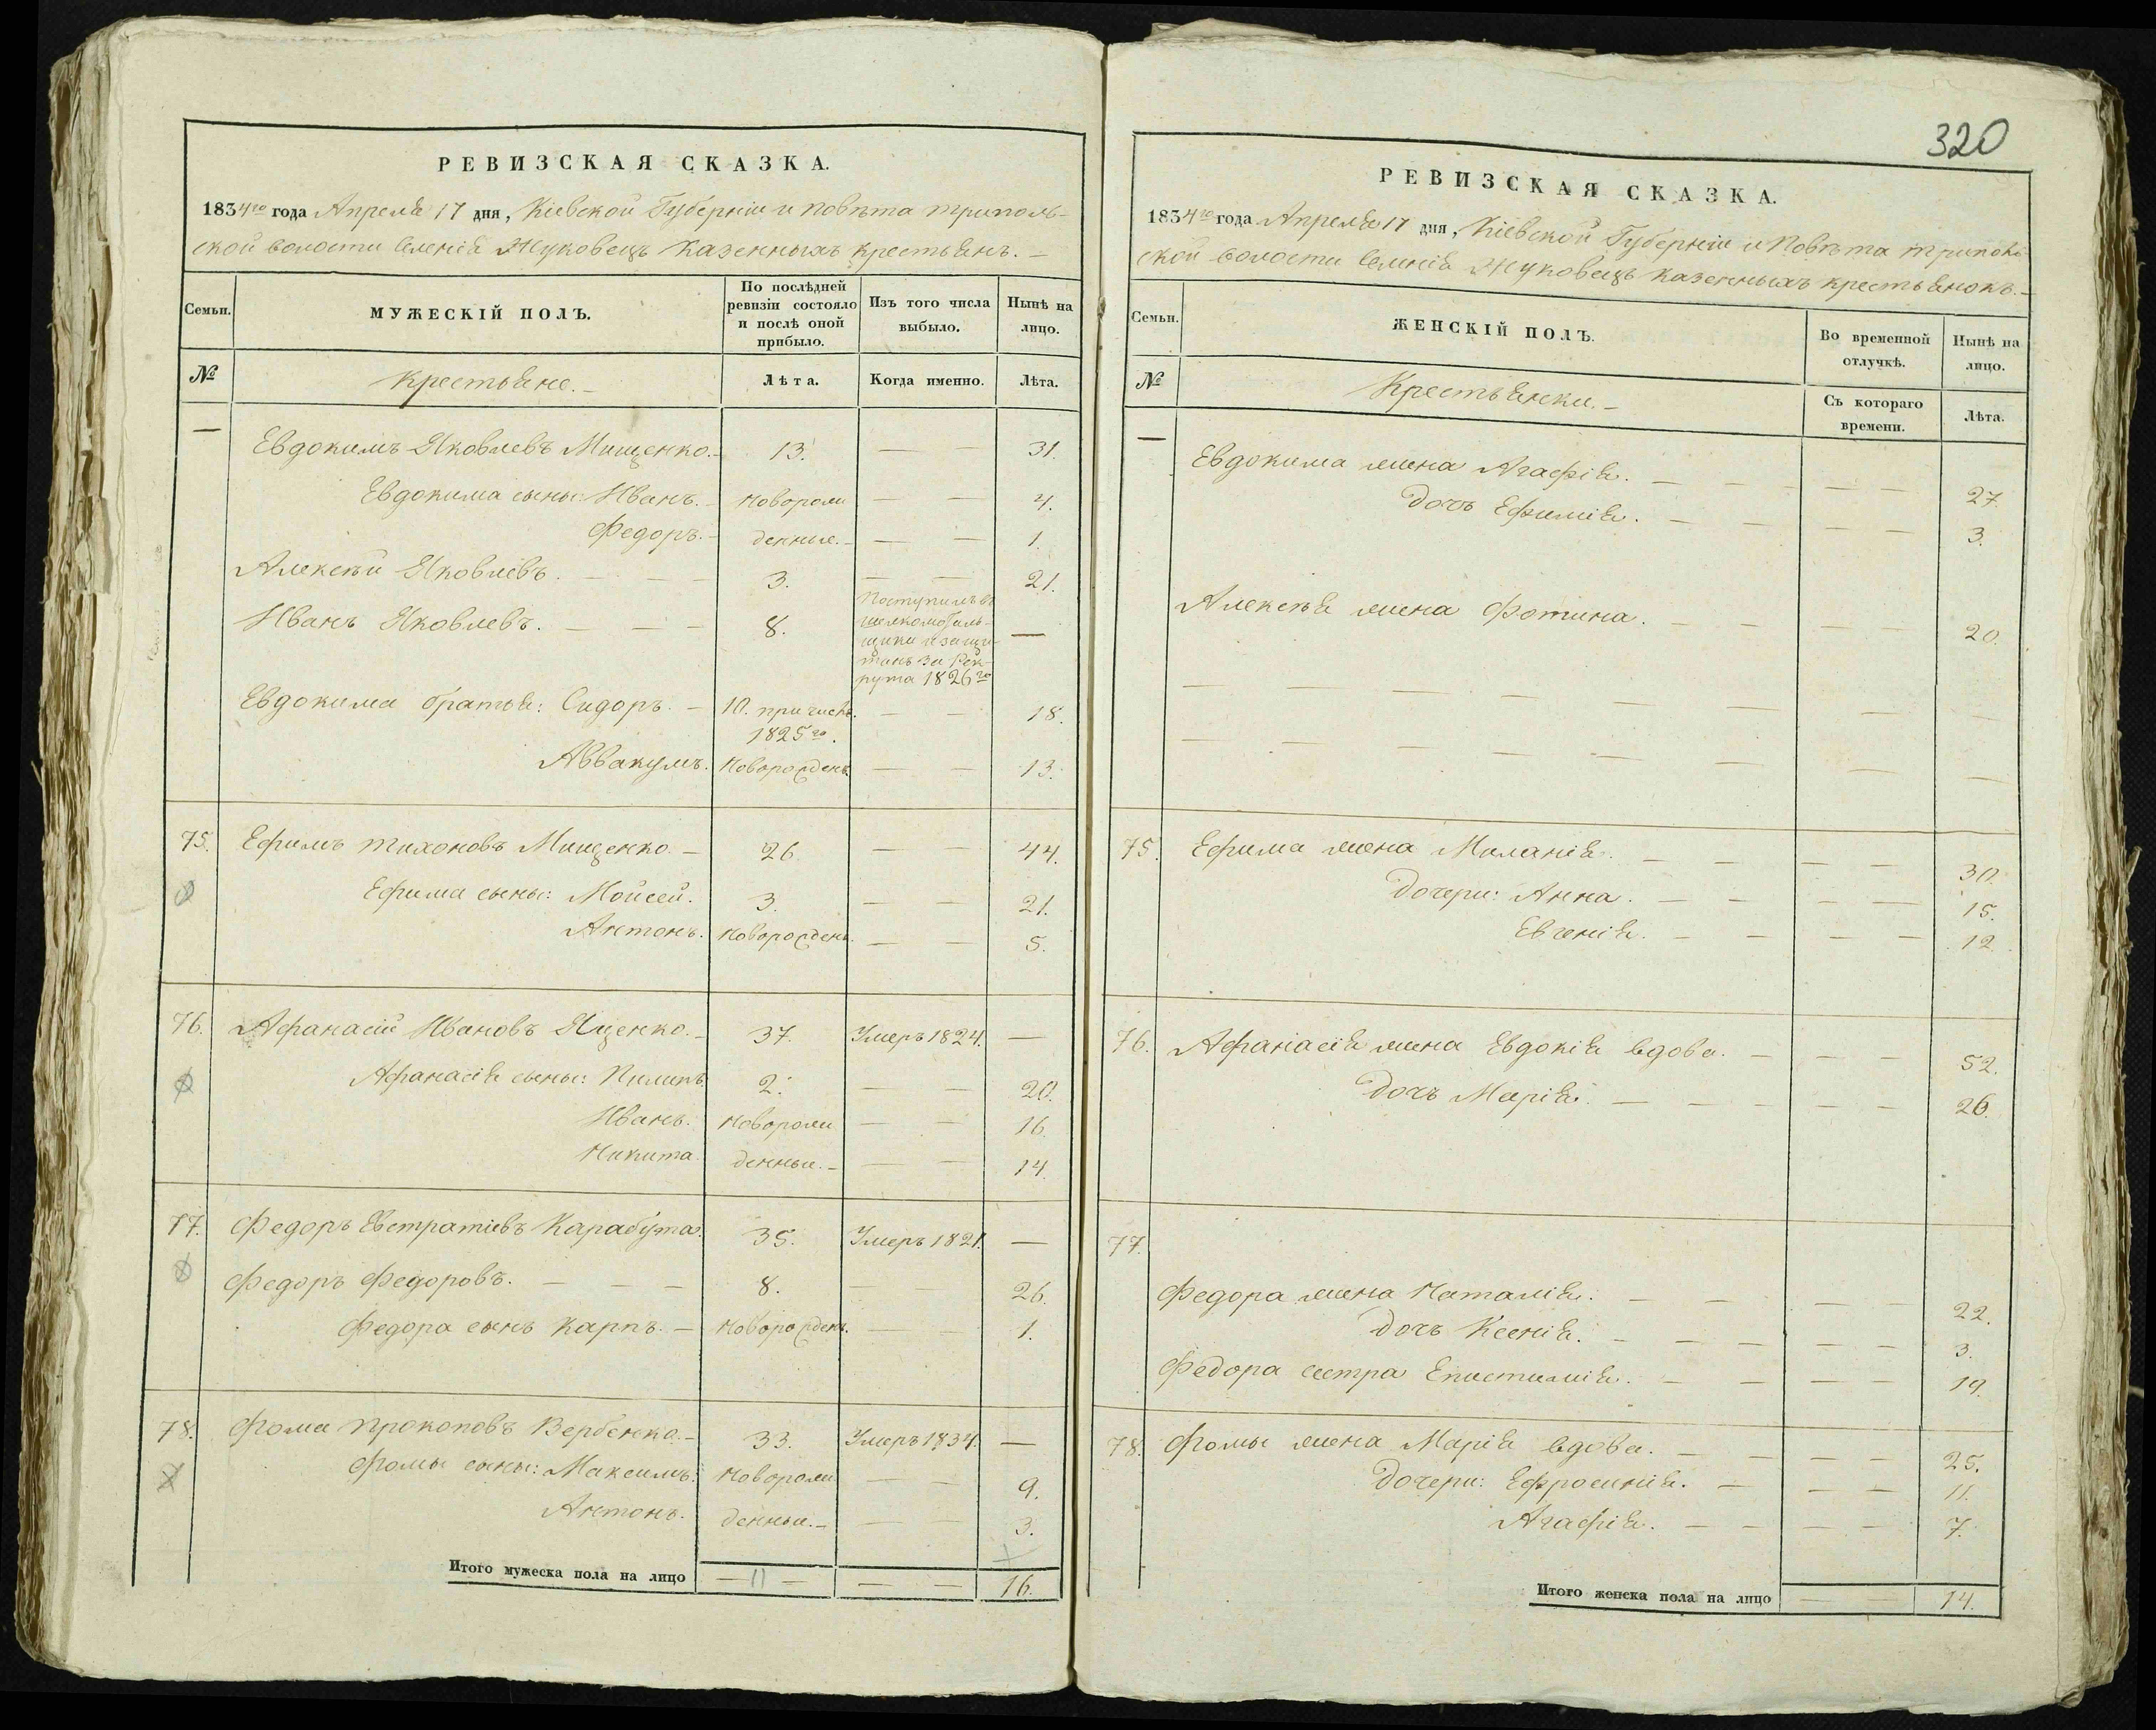 РЕВИЗСКАЯ СКАЗКА.
1834го года Апреля 17 дня, Кіевской Губерніи и Повѣта триполь-
ской волости Селенія Жуковецъ Казенныхъ крестьянъ. —
Семьи.
МУЖЕСКІЙ ПОЛЪ.
По послѣдней ревизіи состояло и послѣ оной прибыло.
Изъ того числа выбыло.
Нынѣ на лицо.
№
крестьяне. —
Лѣта.
Когда именно.
Лѣта.
— Евдокимъ Яковлевъ Мищенко. — 13. — — 31.
Евдокима сыны: Иванъ. — новорож — — 4.
Федоръ. — денные. — — — 1.
Алексѣй Яковлевъ. — — — 3. — — 21.
Иванъ Яковлевъ. — — — 8. Поступилъ въ —
щики и защи-
танъ за Рек-
рута 1826го
Евдокима братья: Сидоръ. — 10. причисл. — — 18.
1825го.
Аввакумъ. Новорожденъ. — — 13.
75. Ефимъ тихоновъ Мищенко. — 26. — — 44.
Ефима сыны: Мойсей. 3. — — 21.
Антонъ. новорожденъ. — — 5.
76. Афанасій Ивановъ Яценко. — 37. Умеръ 1824. —
Афанасія сыны: Пилипъ. 2. — — 20.
Иванъ. новорож — — 16.
Никита. денные. — — — 14.
77. Федоръ Евстратіевъ Карабута. 35. Умеръ 1821. —
Федоръ Федоровъ. — — — 8. — — 26.
Федора сынъ Карпъ. — новорожденъ. — — 1.
78. Фома Прокоповъ Вербенко. — 33. Умеръ 1834. —
Фомы сыны: Максимъ. новорож — — 9.
Антонъ. денные. — — — 3.
Итого мужеска пола на лицо — 11 — — — 16.
320
РЕВИЗСКАЯ СКАЗКА.
1834го года Апреля 17 дня, Кіевской Губерніи и Повѣта триполь-
ской волости Селенія Жуковецъ казенныхъ крестьянокъ. —
Семьи.
ЖЕНСКІЙ ПОЛЪ.
Во временной отлучкѣ.
Нынѣ на лицо.
№
Крестьянки. —
Съ котораго времени.
Лѣта.
— Евдокима жена Агафія. — — — — — 27.
Дочь Ефимія. — — — — — 3.
Алексѣя жена Фотина. — — — — — 20.
— — — — — — — —
— — — — — — — —
75. Ефима жена Миланія. — — — — 30.
Дочери: Анна. — — — — 15.
Евгенія. — — — — 12.
76. Афанасія жена Евдокія вдова. — — — — 52.
Дочь Марія. — — — — — 26.
77.
Федора жена Наталія. — — — — 22.
Дочь Ксенія. — — — — — 3.
Федора сестра Епистимія. — — — — 19.
78. Фомы жена Марія вдова. — — — — 25.
Дочери: Ефросинія. — — — 11.
Агафія. — — — — 7.
Итого женска пола на лицо — — 14.